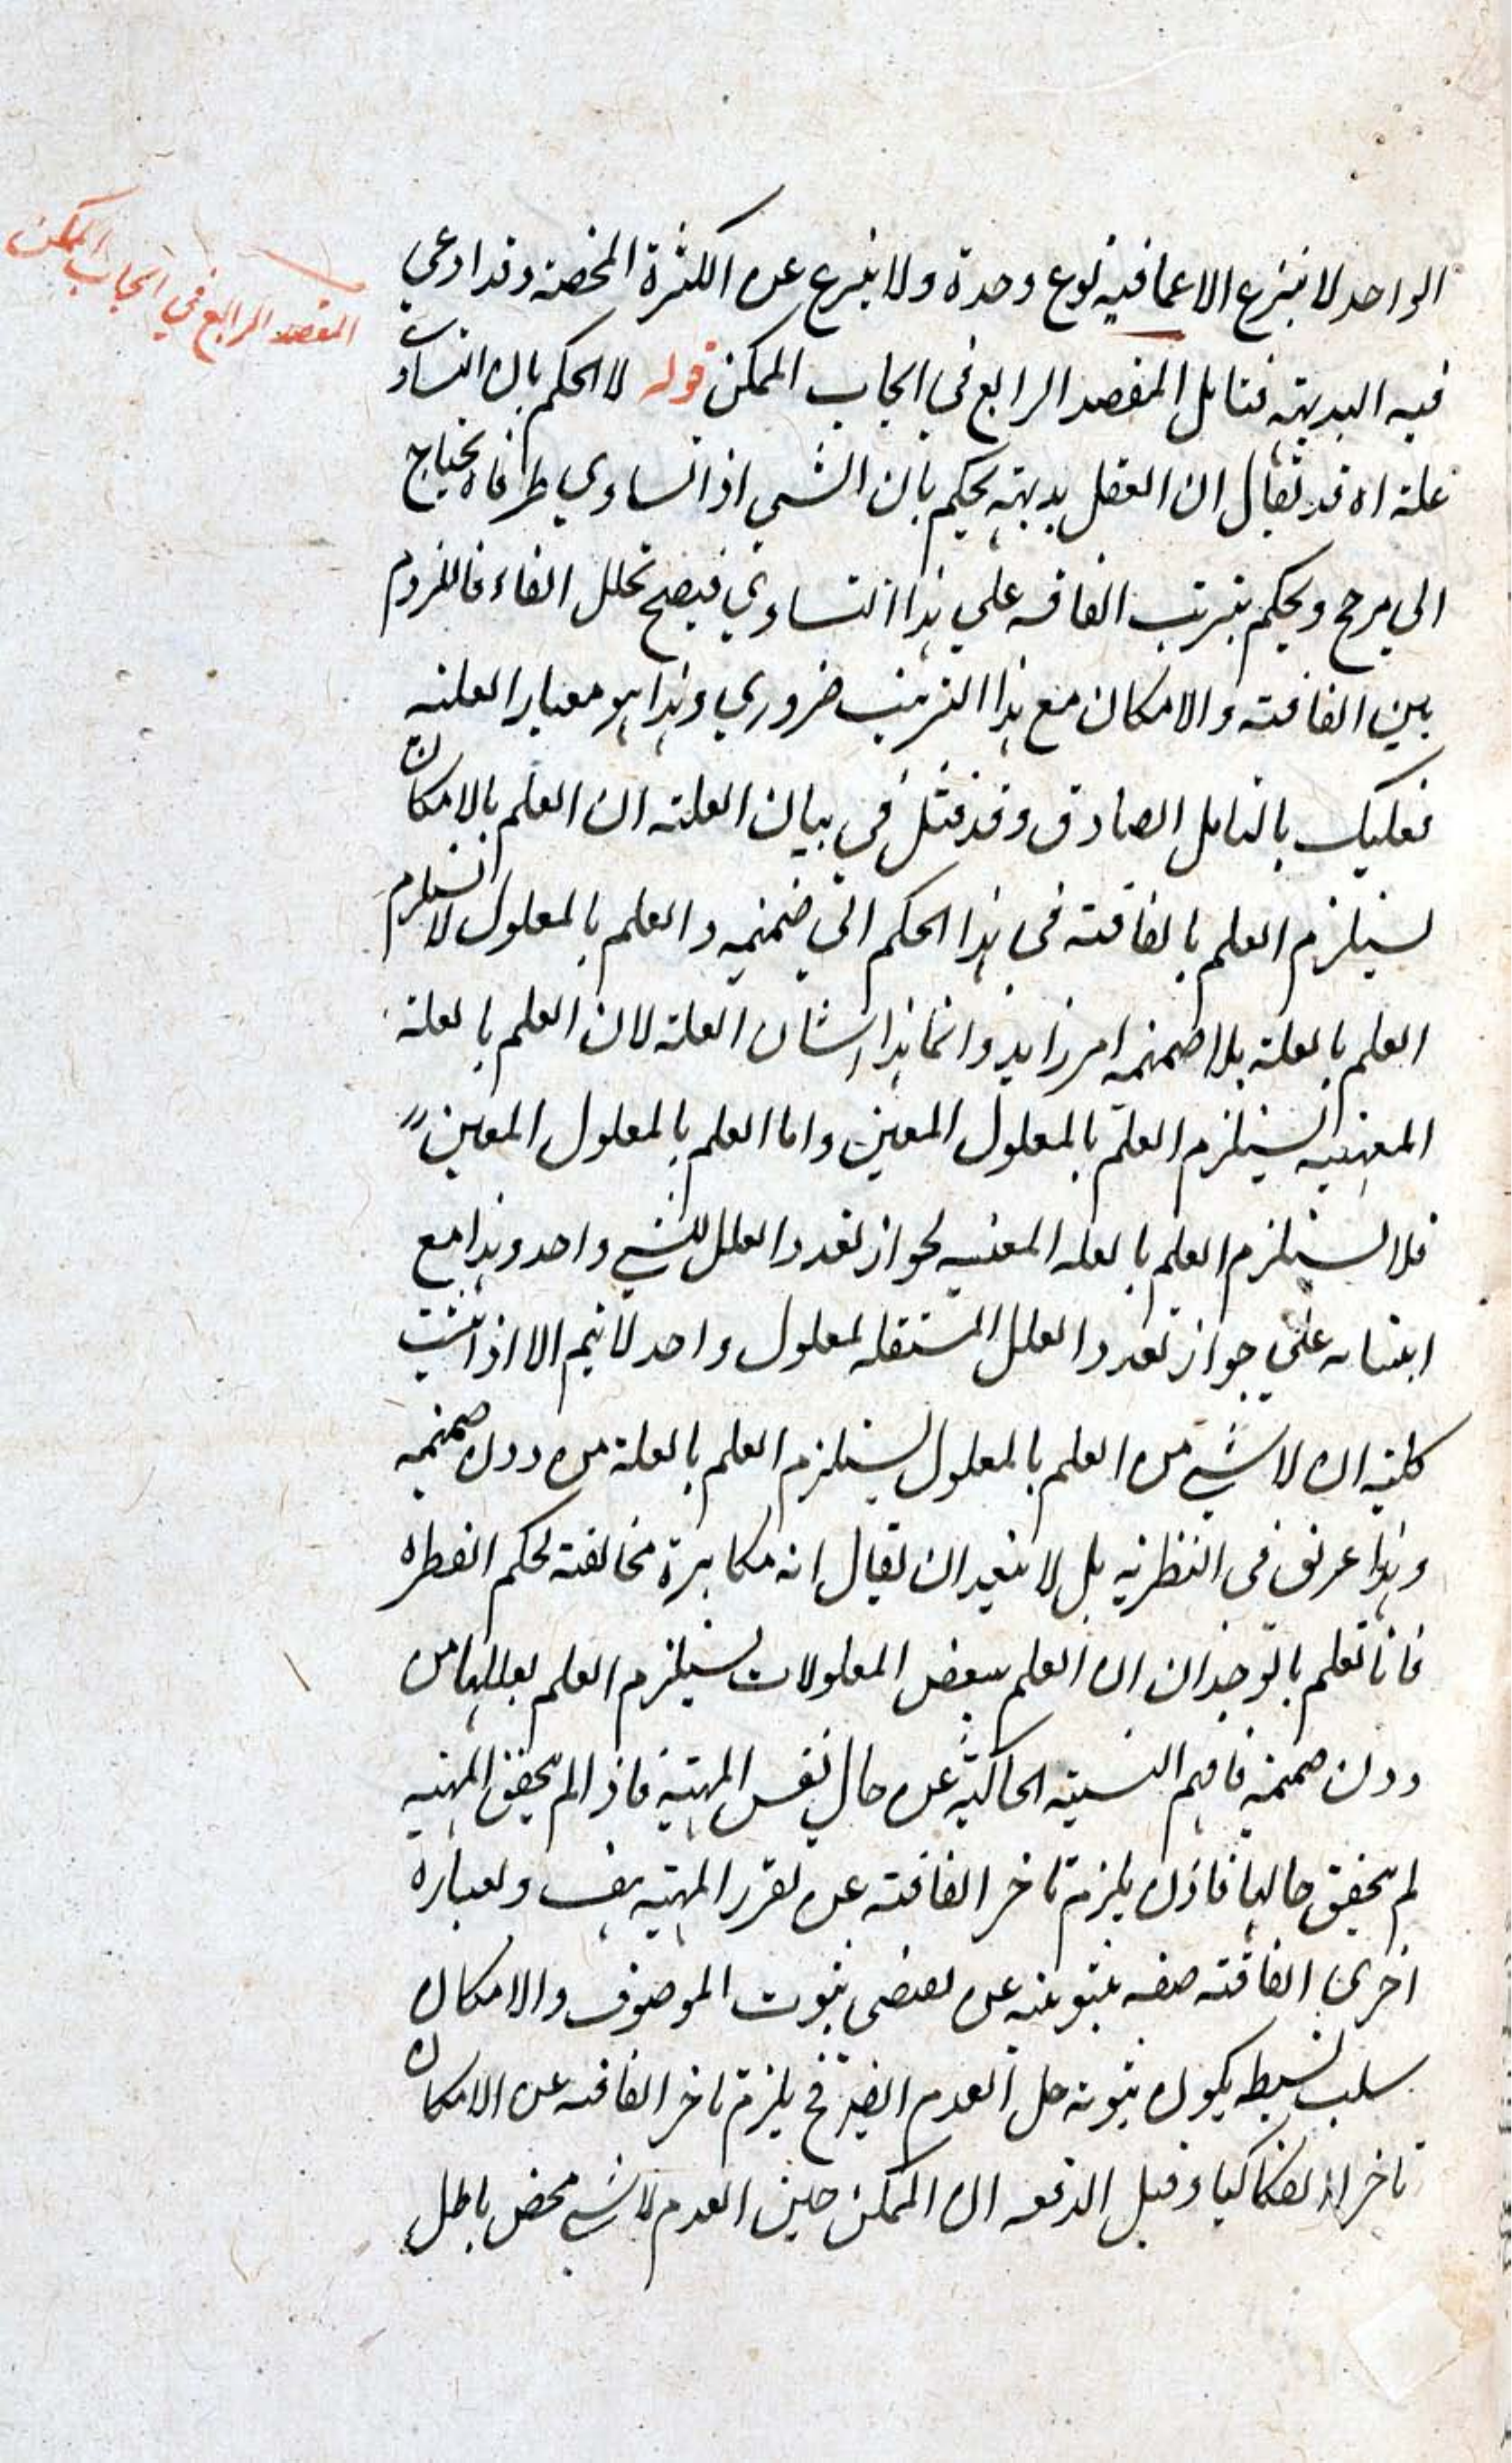 المقصد الرابع في ايجاب الممكن
الواحد لا ينتزع الا عما فيه نوع وحدة ولا ينتزع عن الكثرة المحضة وقد ادعي
فيه البديهة فتامل المقصد الرابع في ايجاب الممكن قوله لا الحكم بان التساوي
علة اه قد يقال ان العقل بديهة يحكم بان الشي اذا تساوي طرفاه يحتاج
الى مرجح ويحكم بترتب الفاقه علي هذا التساوي فيصح تخلل الفاء فاللزوم
بين الفاقة والامكان مع هذا الترتيب ضروري وهذا هو معيار العلية
فعليك بالتامل الصادق وقد قيل في بيان العلة ان العلم بالامكان
يستلزم العلم بالفاقة في هذا الحكم الى ضميمة والعلم بالمعلول لا يستلزم
العلم بالعلة بلا ضميمة امر زايد وانما هذا شان العلة لان العلم بالعلة
المعينة يستلزم العلم بالمعلول المعين واما العلم بالمعلول المعين
فلا يستلزم العلم بالعله المعنيه لجواز تعدد العلل لشي واحد وهذا مع
ابتنائه علي جواز تعدد العلل المستقله لمعلول واحد لا يتم الا اذا ثبت
كلية ان لا شي من العلم بالمعلول يستلزم العلم بالعلة من دون ضميمة
وهذا عريق في النظرية بل لا يبعد ان يقال انه مكابرة مخالفة لحكم الفطره
فانا نعلم بالوجدان ان العلم ببعض المعلولات يستلزم العلم بعللها من
دون ضميمة فافهم النسبة الحاكية عن حال نفس المهية فاذا لم يتحقق المهية
لم يتحقق حالها فاذن يلزم تاخر الفاقة عن تقرر المهية هف وبعبارة
اخرى الفاقة صفه ثبوتية عن يقتضى ثبوت الموصوف والامكان
سلب بسيط يكون ثبوته حال العدم ايضا فح يلزم تاخر الفاقة عن الامكان
تاخرا انفكاكيا وقيل الدفعه ان الممكن حين العدم لا شي محض باطل